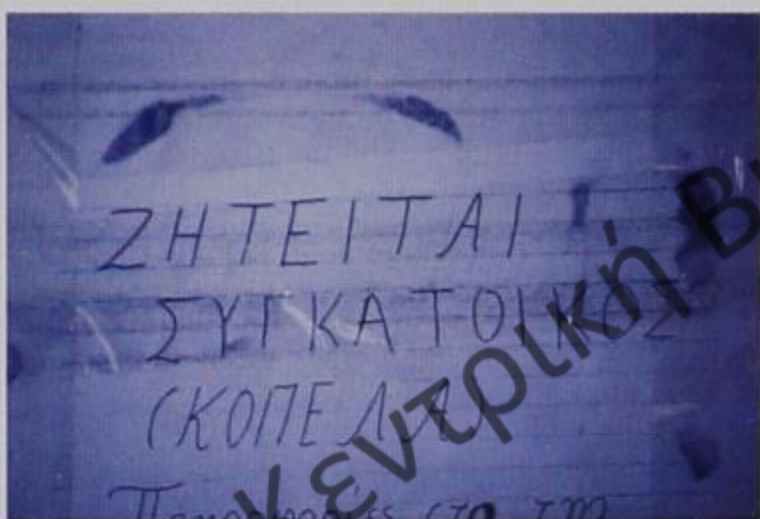 ΖΗΤΕΙΤΑΙ
ΣΥΓΚΑΤΟΙΚΟΣ
(ΚΟΠΕΛΑ)
Πληροφορίες στο τηλ
Κεντρική